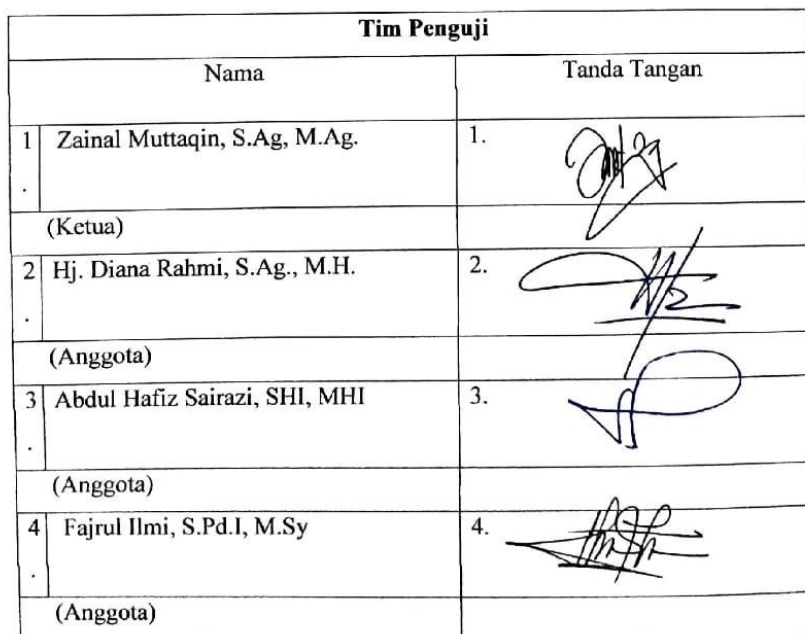 Tim Penguji
Nama Tanda Tangan
1 Zainal Muttaqin, S.Ag, M.Ag. 1.
.
(Ketua)
2 Hj. Diana Rahmi, S.Ag., M.H. 2.
.
(Anggota)
3 Abdul Hafiz Sairazi, SHI, MHI 3.
.
(Anggota)
4 Fajrul Ilmi, S.Pd.I, M.Sy 4.
.
(Anggota)